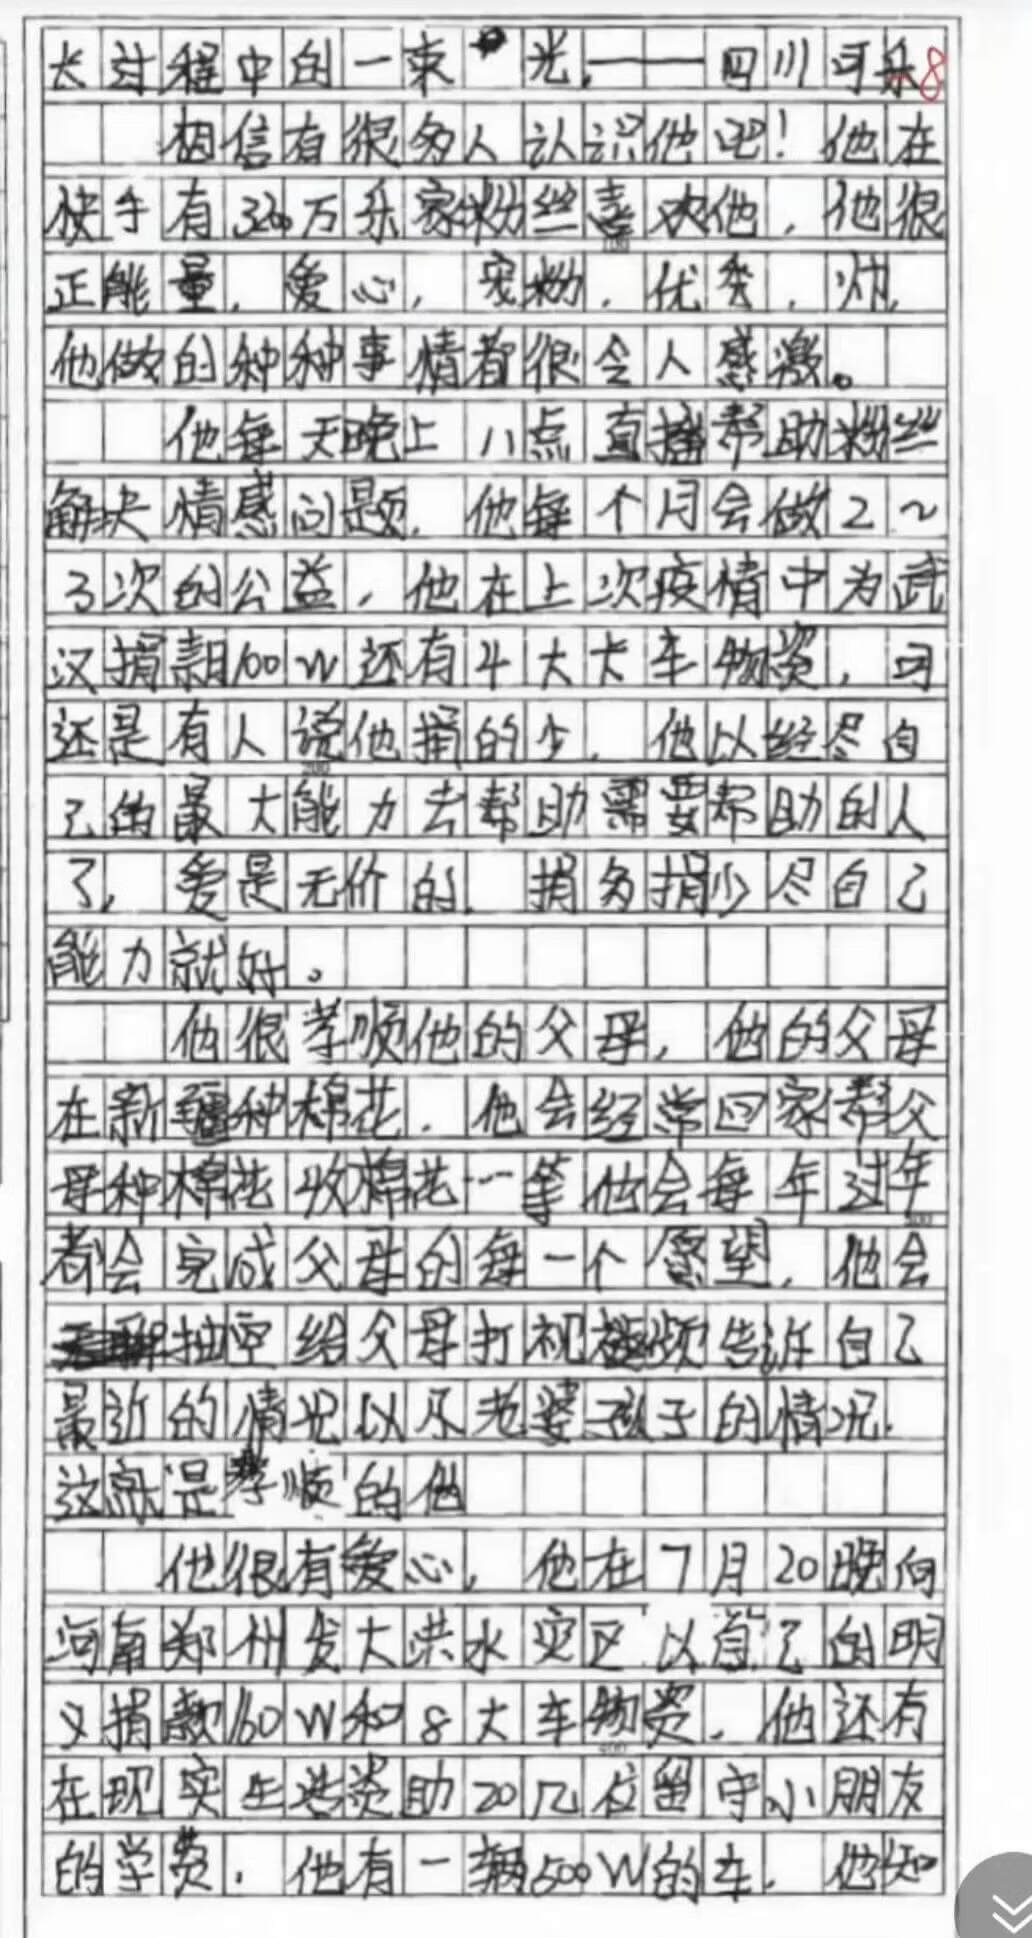 长过程中的一束光,——四川可乐8
相信有很多人认识他吧!他在
快手有320万乐家粉丝喜欢他,他很
正能量,爱心,宠粉,优秀,帅,
他做的种种事情都很令人感激。
他每天晚上八点直播帮助粉丝
解决情感问题,他每个月会做2~
3次的公益,他在上次疫情中为武
汉捐款100W还有4大卡车物资,可
还是有人说他捐的少,他以经尽自
己的最大能力去帮助需要帮助的人
了,爱是无价的,捐多捐少尽自己
能力就好。
他很孝顺他的父母,他的父母
在新疆种棉花,他会经常回家帮父
母种棉花收棉花…等他会每年过年
都会完成父母的每一个愿望,他会
抽空给父母打视频告诉自己
最近的情况以及老婆孩子的情况,
这就是孝顺的他
他很有爱心,他在7月20晚向
河南郑州发大洪水灾区以自己的明
义捐款160W和8大车物资,他还有
在现实生活资助20几位留守小朋友
的学费,他有一辆500W的车,他知